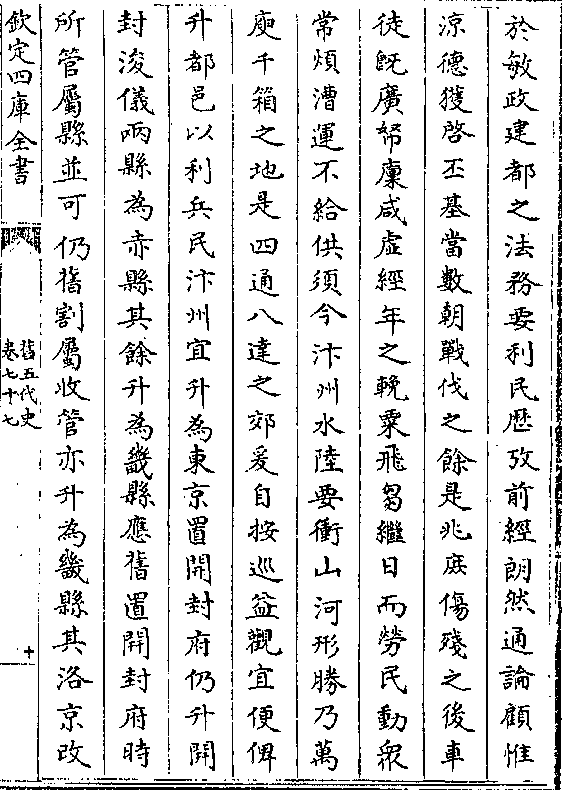 於敏政建都之法務要利民歴攷前經朗然通論顧惟
涼德獲啓丕基當數朝戰伐之餘是兆庶傷殘之後車
徒既廣帑廩咸虛經年之輓粟飛芻繼日而勞民動衆
常煩漕運不給供須今汴州水陸要衝山河形勝乃萬
庾千箱之地是四通八達之郊爰自按巡益觀宜便俾
升都邑以利兵民汴州宜升為東京置開封府仍升開
封浚儀兩縣為赤縣其餘升為畿縣應舊置開封府時
所管屬縣並可仍舊割屬收管亦升為畿縣其洛京改
欽定四庫全書
舊五代史
卷七十七
十